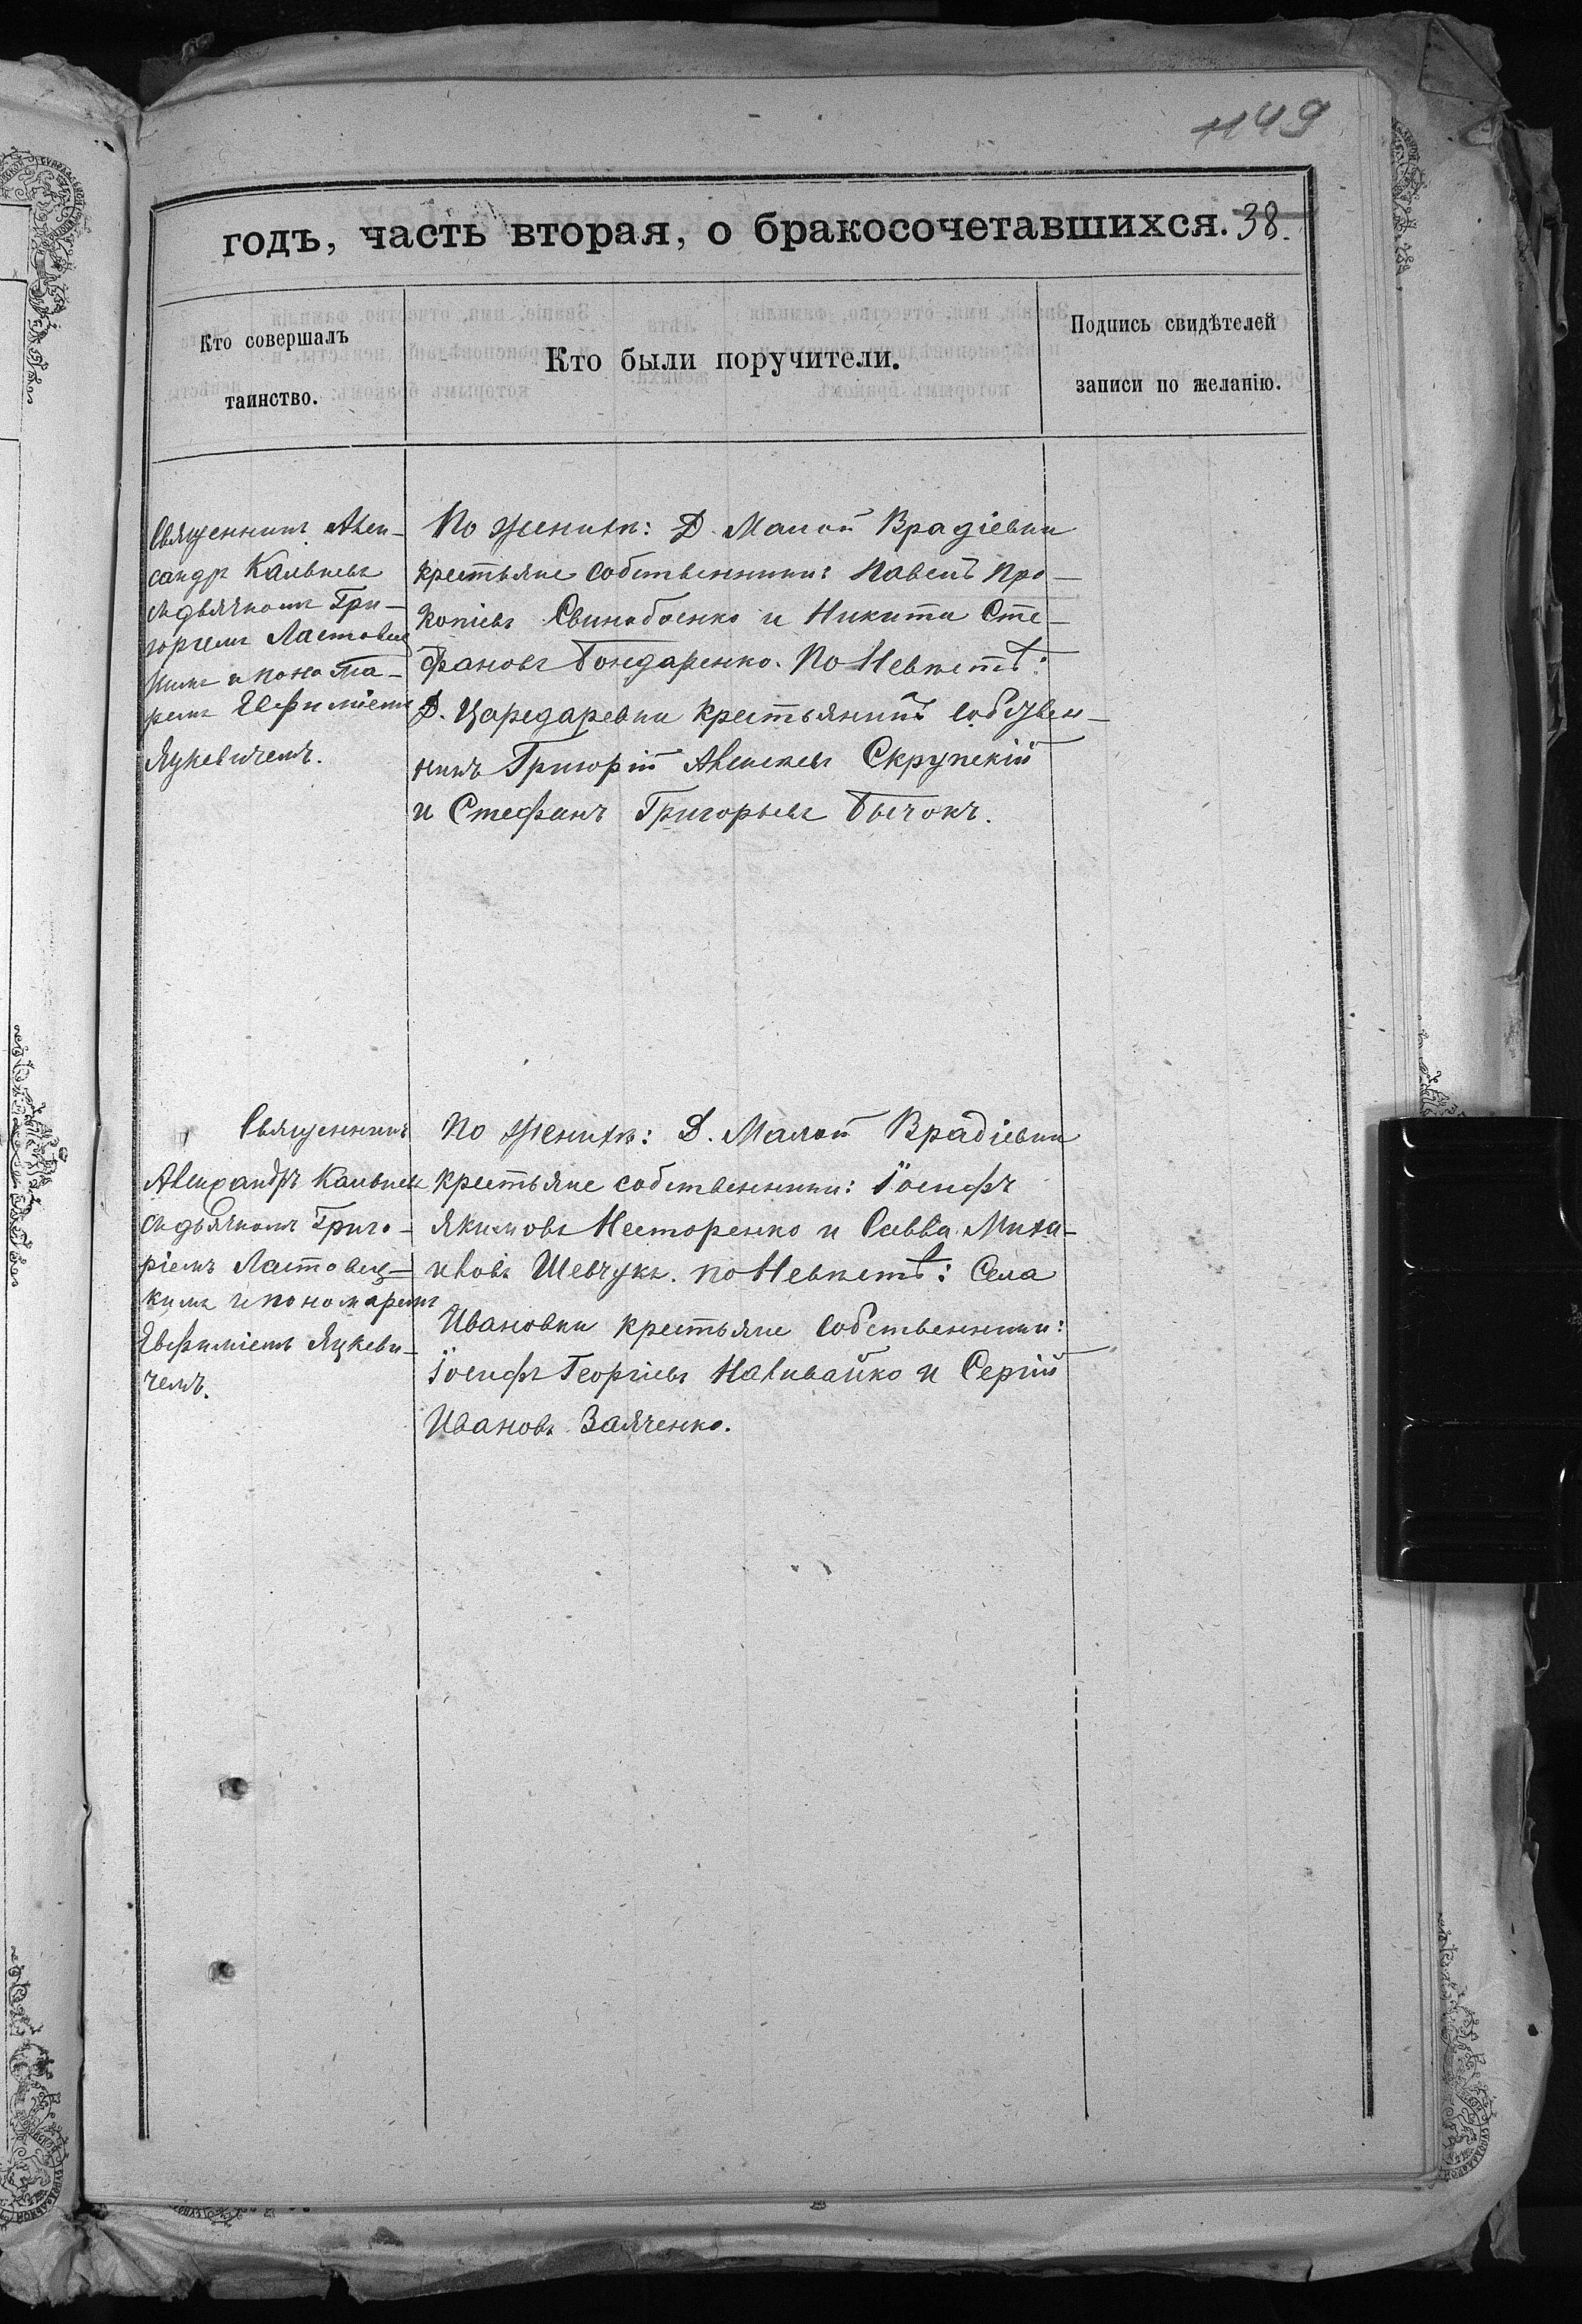 1149
годъ, часть вторая, о бракосочетавшихся. 38.
Кто совершалъ
таинство.
Кто были поручители.
Подпись свидѣтелей
записи по желанію.
Священникъ Алек-
сандръ Кальневъ
съ дьячкомъ Гри-
горіемъ Ластовец
кимъ и понома-
ремъ Евфиміемъ
Яцкевичемъ.
По женихѣ: Д. Малой Врадіевки
крестьяне собственники: Павелъ Про-
копіевъ Свинобоенко и Никита Сте-
фановъ Бондаренко. По Невѣстѣ:
Д. Царедаревки крестьянинъ собствен-
никъ Григорій Алексѣевъ Скрупскій
и Стефанъ Григорьевъ Бычокъ.
Священникъ
Александръ Кальневъ
съ дьячкомъ Григо-
ріемъ Ластовец-
кимъ и пономаремъ
Евфиміемъ Яцкеви-
чемъ.
По женихѣ: Д. Малой Врадіевки
крестьяне собственники: Іосифъ
Якимовъ Несторенко и Савва Миха-
иловъ Шевчукъ. по Невѣстѣ: Села
Ивановки крестьяне собственники:
Іосифъ Георгіевъ Наливайко и Сергій
Ивановъ Заяченко.